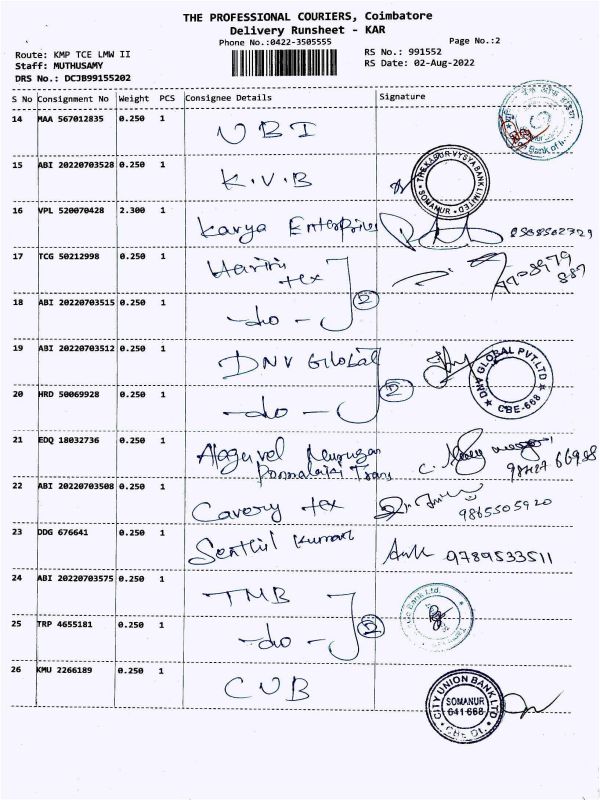 THE PROFESSIONAL COURIERS, Coimbatore
Delivery Runsheet - KAR
Phone No.:0422-3505555
Page No.:2
Route: KMP TCE LMW II
RS No.: 991552
Staff: MUTHUSAMY
RS Date: 02-Aug-2022
DRS No.: DCJB99155202
S No Consignment No Weight PCS Consignee Details Signature
14 MAA 567012835 0.250 1 UBI
15 ABI 20220703528 0.250 1 K.V.B
THE KARUR VYSYA BANK LIMITED
SOMANUR
16 VPL 520070428 2.300 1 Karya Enterprises
17 TCG 50212998 0.250 1 Harini tex
18 ABI 20220703515 0.250 1 -do- 2
19 ABI 20220703512 0.250 1 DNV Global
DNV GLOBAL PVT.LTD
CBE-668
20 HRD 50069928 0.250 1 -do- 2
21 EDQ 18032736 0.250 1 Alaguvel Murugan
Ponmalaiki Trans
22 ABI 20220703508 0.250 1 Cavery tex 9865505920
23 DDG 676641 0.250 1 Senthil Kumar 9789533511
24 ABI 20220703575 0.250 1 TMB
25 TRP 4655181 0.250 1 -do- 2
26 KMU 2266189 0.250 1 CUB
CITY UNION BANK LTD
SOMANUR
641 668
CBE DT.